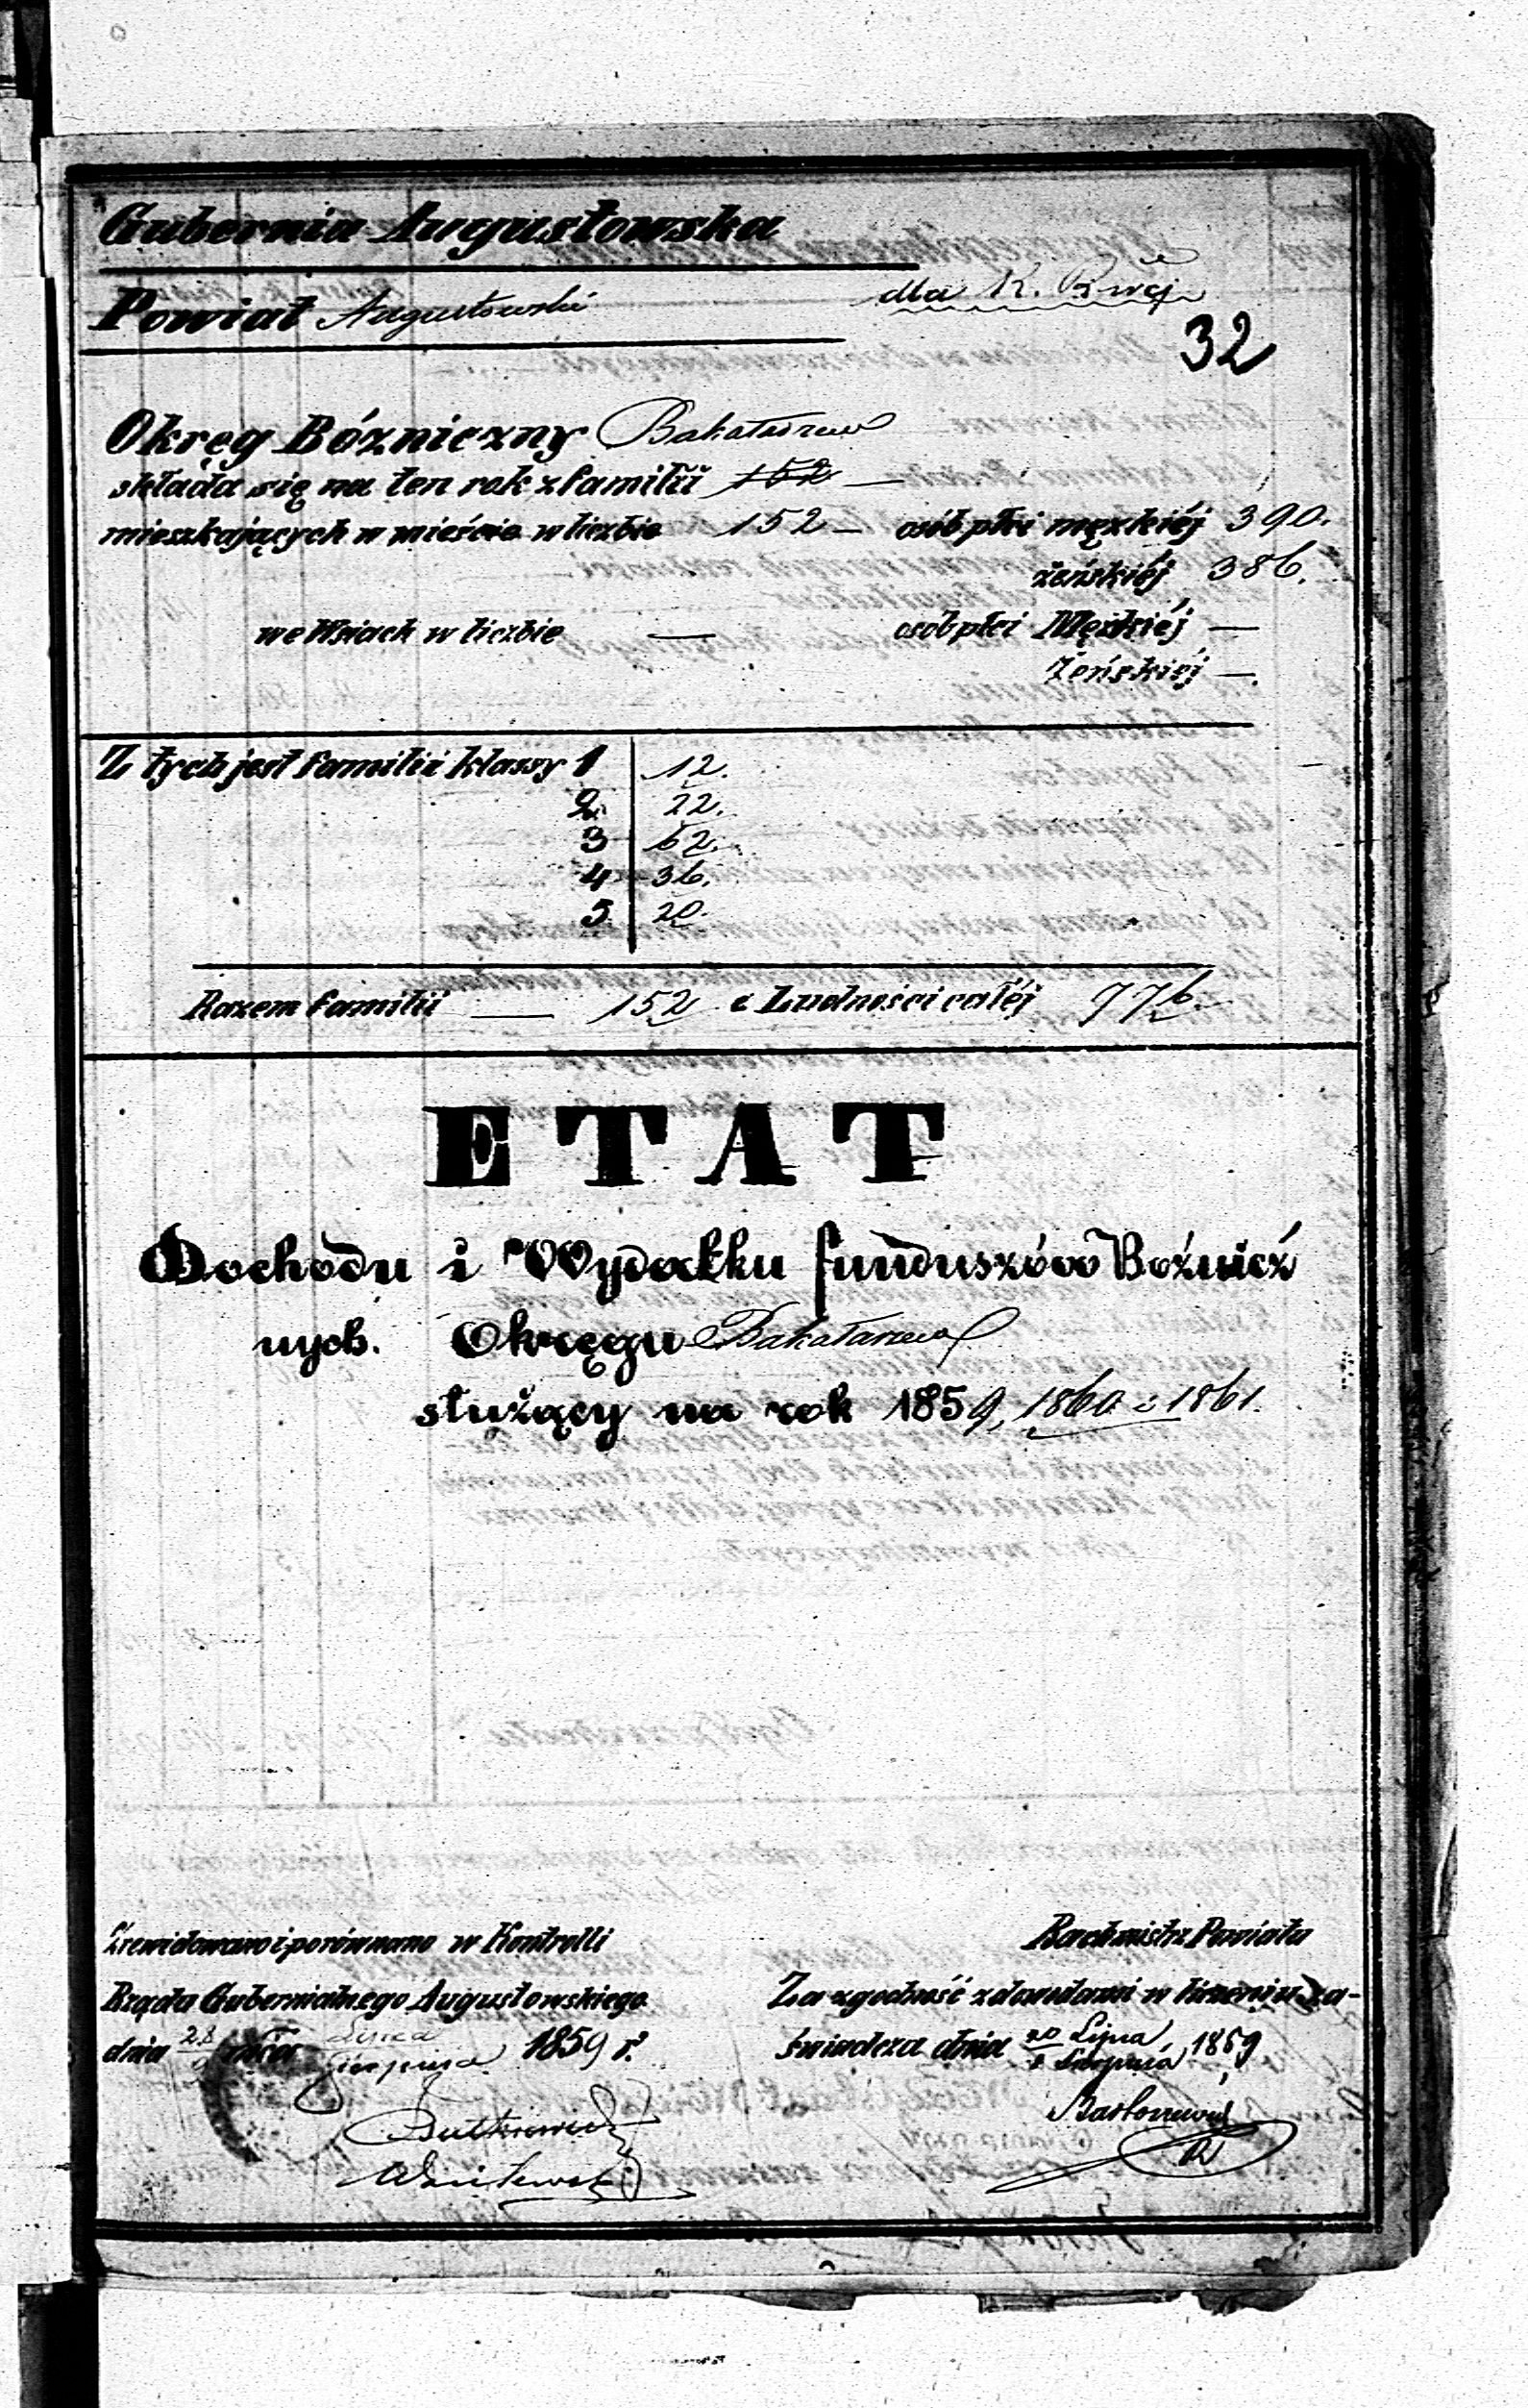 Gubernia Augustowska
Powiat Augustowski
dla K. Rząd.
32
Okręg Bóżniczny Bakałarzew
składa się na ten rok z familii 152 —
mieszkających w mieście w liczbie 152 — osób płci męzkiéj 390.
żeńskiéj 386.
we Wsiach w liczbie — osób płci Męzkiéj —
Żeńskiéj —.
Z tych jest familii klassy 1 12.
2. 22.
3 62.
4 36.
5 20.
Razem familii — 152 i Ludności całéj 776.
ETAT
Dochodu i Wydatku funduszów Bożnicz
nych. Okręgu Bakałarzew
służący na rok 1859, 1860 i 1861.
Zrewidowano i porównano w Kontrolli
Rządu Gubernialnego Augustowskiego
dnia 28 Lipca
Sierpnia 1859 r.
Rachmistrz Powiatu
Za zgodność z dowodami w liczeniu za-
świadcza dnia 20 Lipca
1 Sierpnia 1859